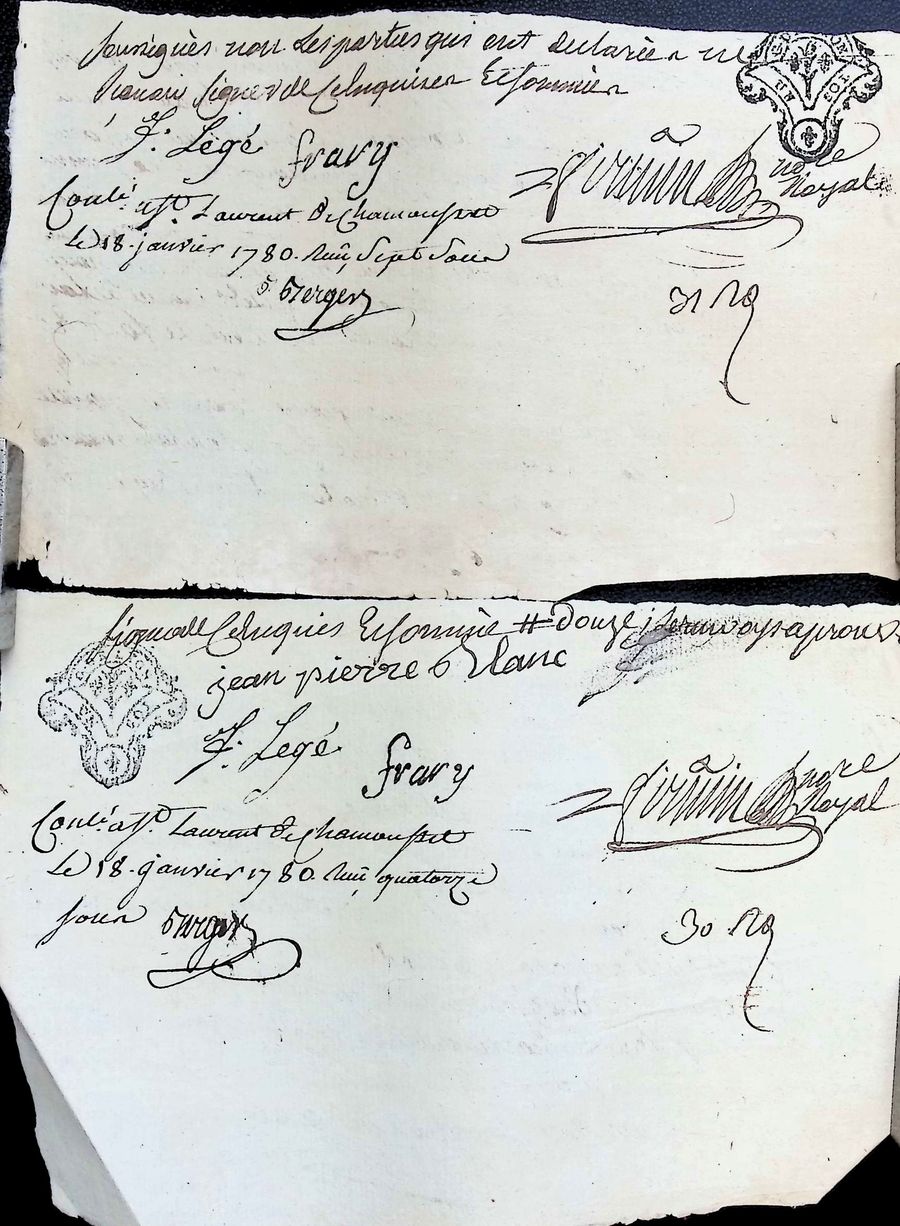 soussignés non les parties qui ont declarées ne
scavoir signer de ce enquises Et sommées
J. Legé fravy
not.re Royal
Conlé a St. Laurent de Chamousset
Le 18. janvier 1780. Reçu Sept sous
Berger
31 Rd
signer de ce enquis Et sommés # douze
jean pierre Blanc
J. Legé fravy
not.re Royal
Conlé a St. Laurent de Chamousset
Le 18. janvier 1780. Reçu quatorze
sous Berger
30. Rd